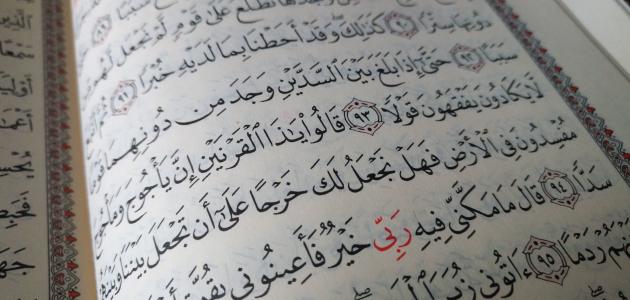 تَطَّلِعُ عَلَىٰ قَوْمٍ لَّمْ نَجْعَل لَّهُم
دُونِهَا سِتْرًا ٩٠ كَذَٰلِكَ وَقَدْ أَحَطْنَا بِمَا لَدَيْهِ خُبْرًا ٩١ ثُمَّ
سَبَبًا ٩٢ حَتَّىٰٓ إِذَا بَلَغَ بَيْنَ ٱلسَّدَّيْنِ وَجَدَ مِن دُونِهِمَا قَوْمًا
لَّا يَكَادُونَ يَفْقَهُونَ قَوْلًا ٩٣ قَالُوا۟ يَٰذَا ٱلْقَرْنَيْنِ إِنَّ يَأْجُوجَ وَمَأْجُوجَ
مُفْسِدُونَ فِى ٱلْأَرْضِ فَهَلْ نَجْعَلُ لَكَ خَرْجًا عَلَىٰٓ أَن تَجْعَلَ بَيْنَنَا وَبَيْنَهُمْ
سَدًّا ٩٤ قَالَ مَا مَكَّنِّى فِيهِ رَبِّى خَيْرٌ فَأَعِينُونِى بِقُوَّةٍ
رَدْمًا ٩٥ ءَاتُونِى زُبَرَ